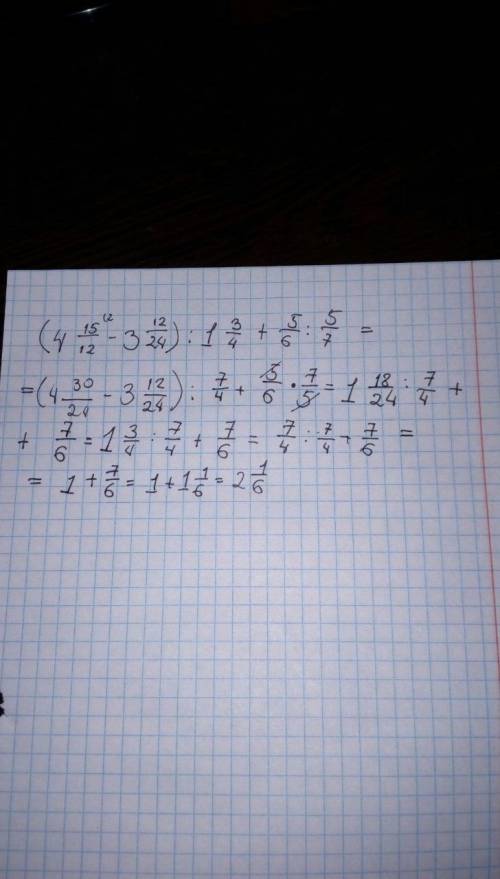 (4 15/12 (2 - 3 12/24) : 1 3/4 + 5/6 : 5/7 =
= (4 30/24 - 3 12/24) : 7/4 + 5/6 · 7/5 = 1 18/24 : 7/4 +
+ 7/6 = 1 3/4 : 7/4 + 7/6 = 7/4 : 7/4 + 7/6 =
= 1 + 7/6 = 1 + 1 1/6 = 2 1/6